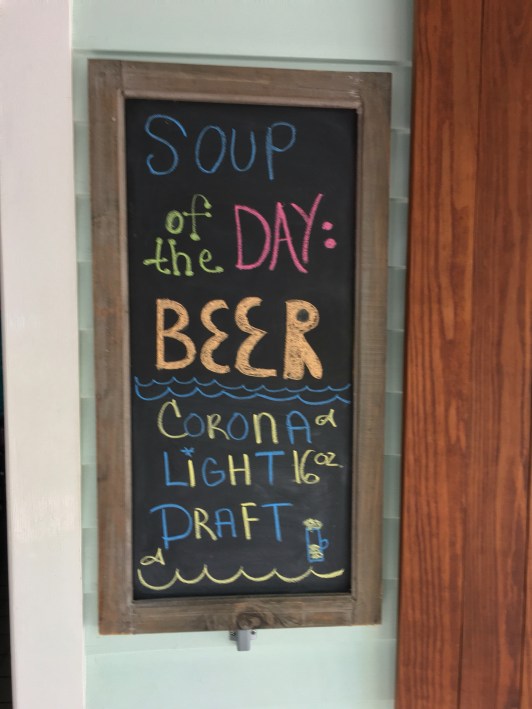 SOUP
of
the DAY:
BEER
CORONA
LIGHT 16oz.
DRAFT